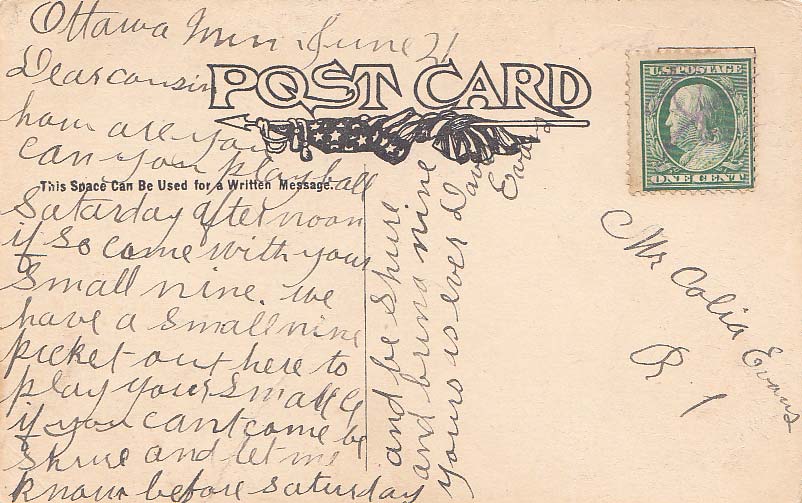 Ottawa Minn June 21
Dear cousin
POST CARD
how are you
can you play ball
This Space Can Be Used for a Written Message.
Saturday afternoon
if so come with your
small nine. we
have a small nine
picket out here to
play your small 9
if you cant come be
shure and let me
know before saturday
and be shure
and bring nine
yours is ever Dave
Evans
U.S. POSTAGE
ONE CENT
Mr Colia Evans
R 1